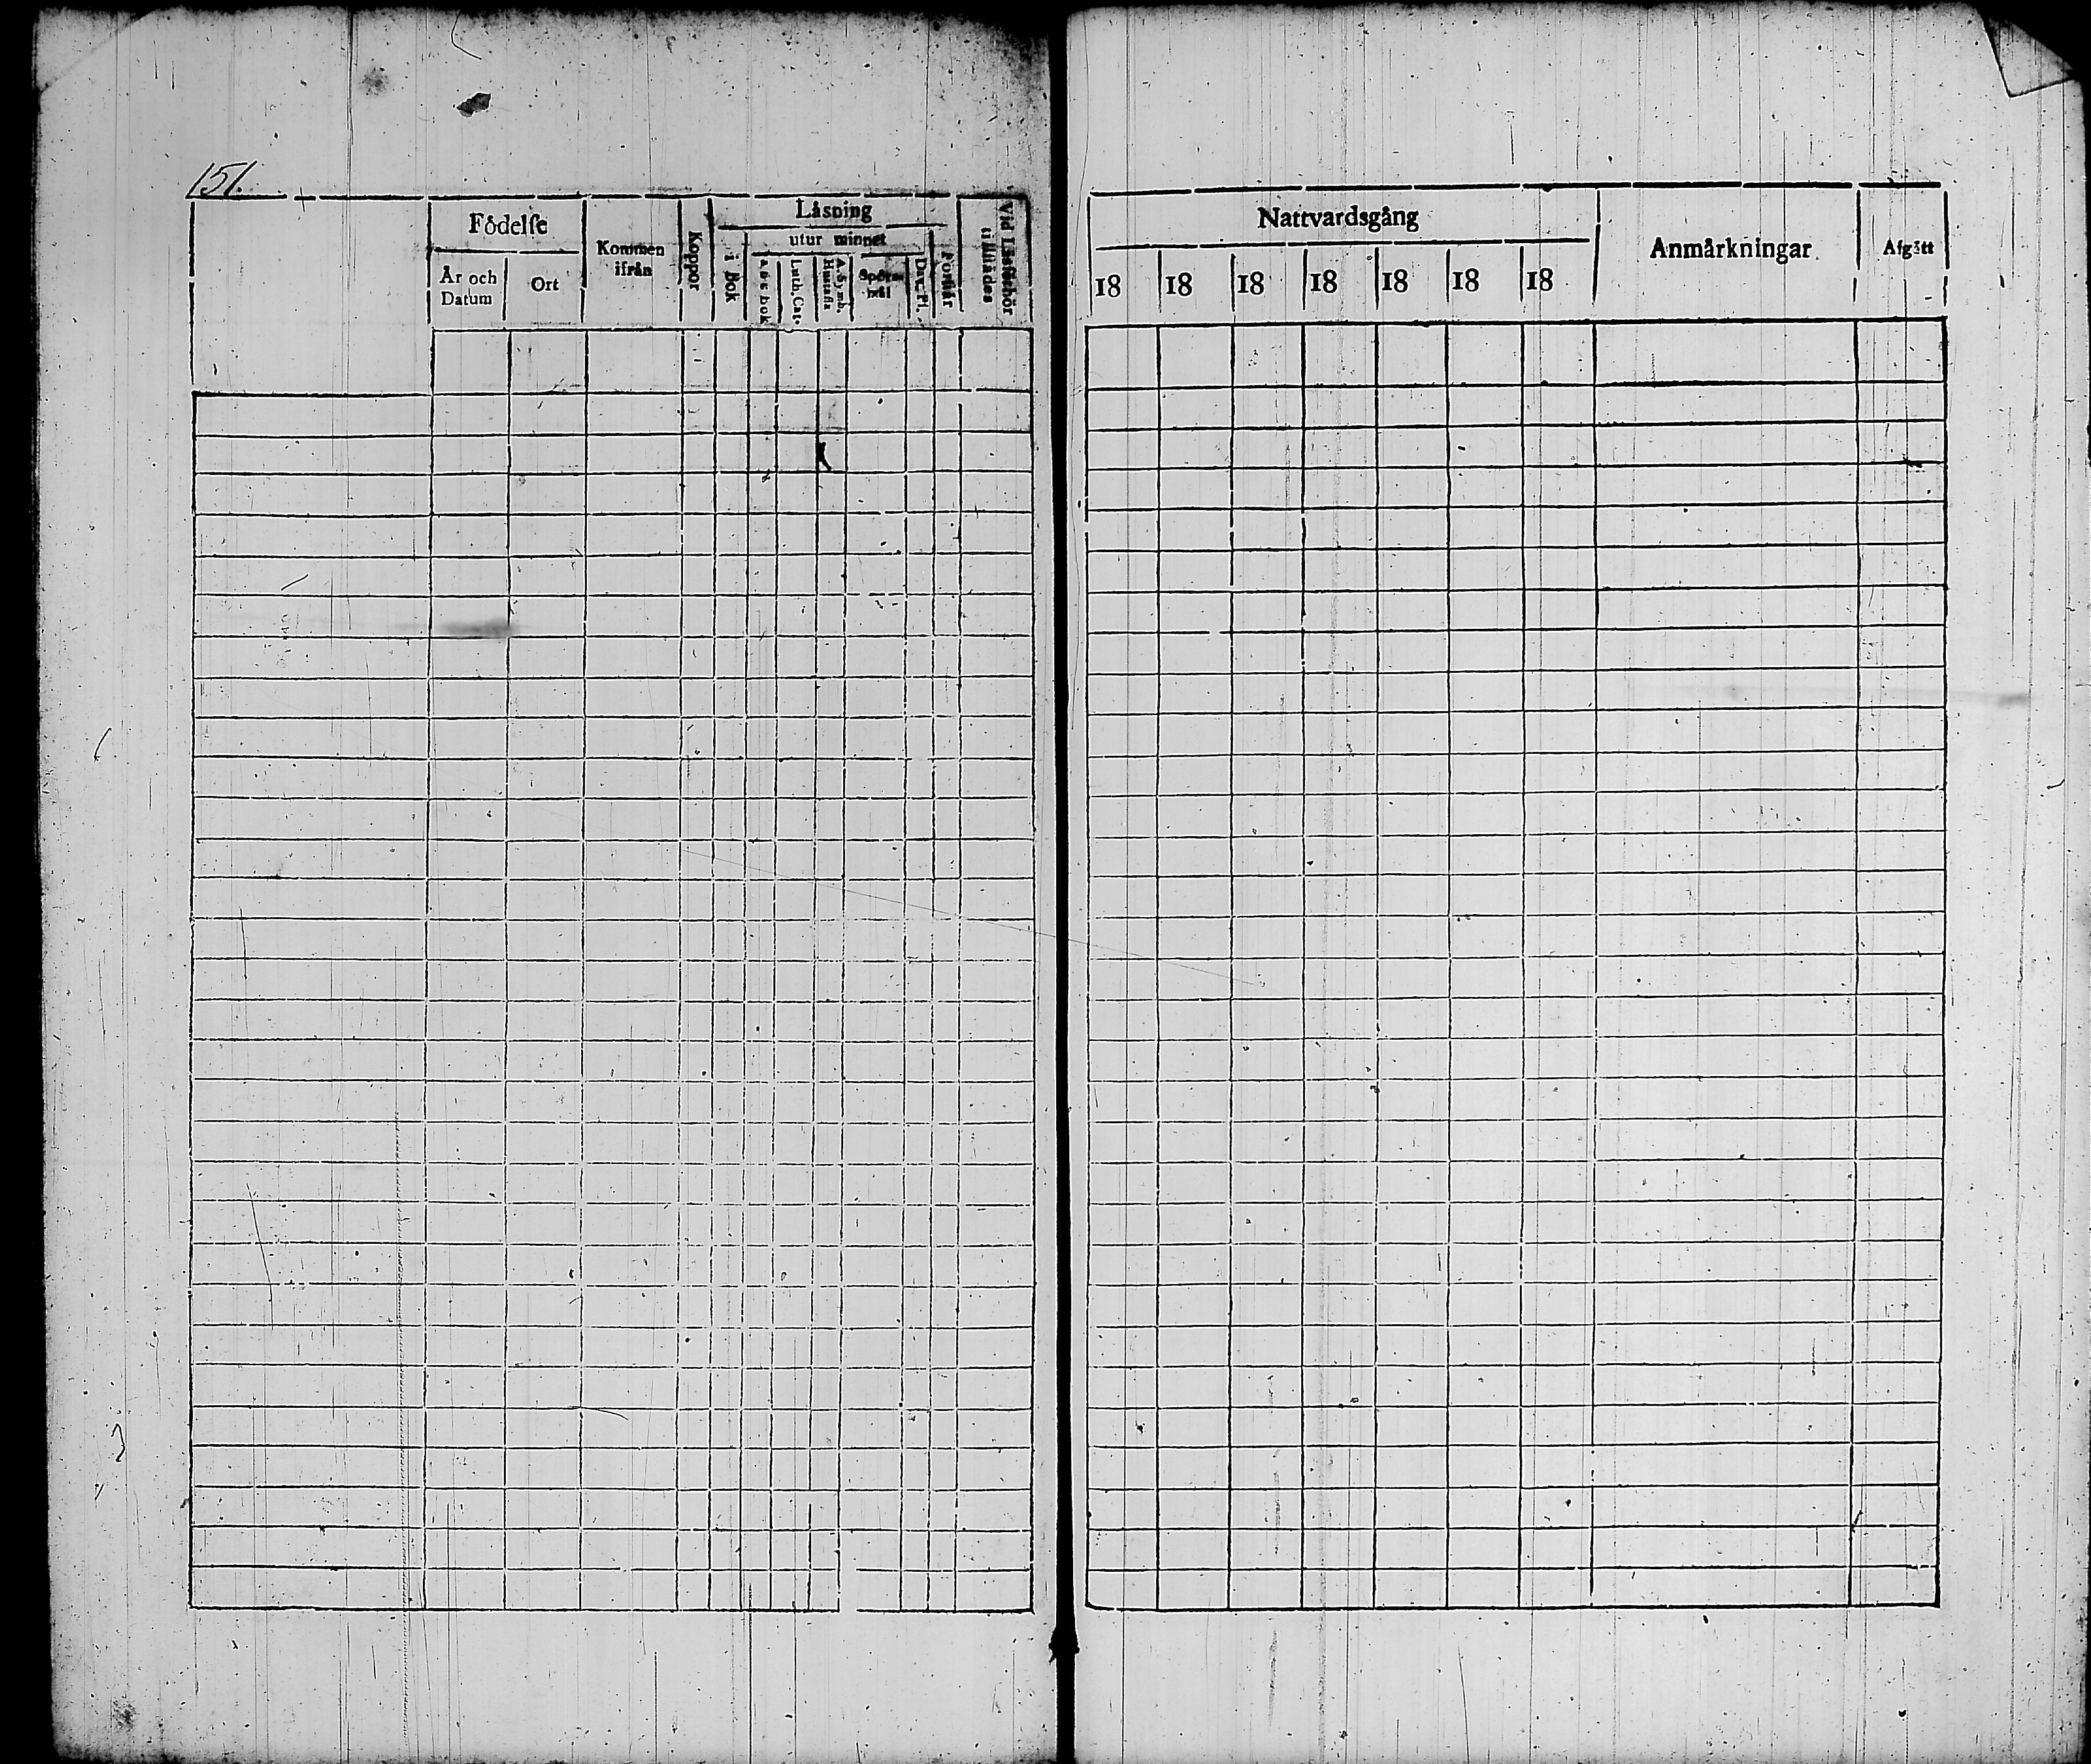 151.
Födelse
År och Datum
Ort
Kommen ifrån
Koppor
Läsning
i Bok
utur minnet
a b c bok
Luth. Cat.
A. Symb. Hustafla
Spörsmål
Dav. Ps.
Förstår
Vid Läsförhör tillstädes
Nattvardsgång
18 18 18 18 18 18 18
Anmärkningar
Afgått